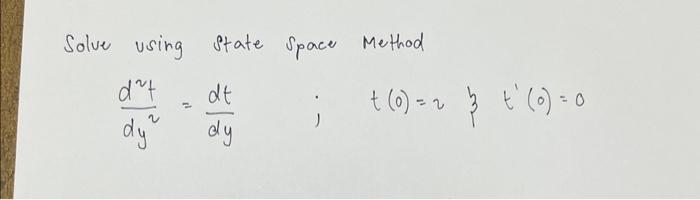 Solve using State Space Method
d²t/dy² = dt/dy ; t(0) = 2 & t'(0) = 0